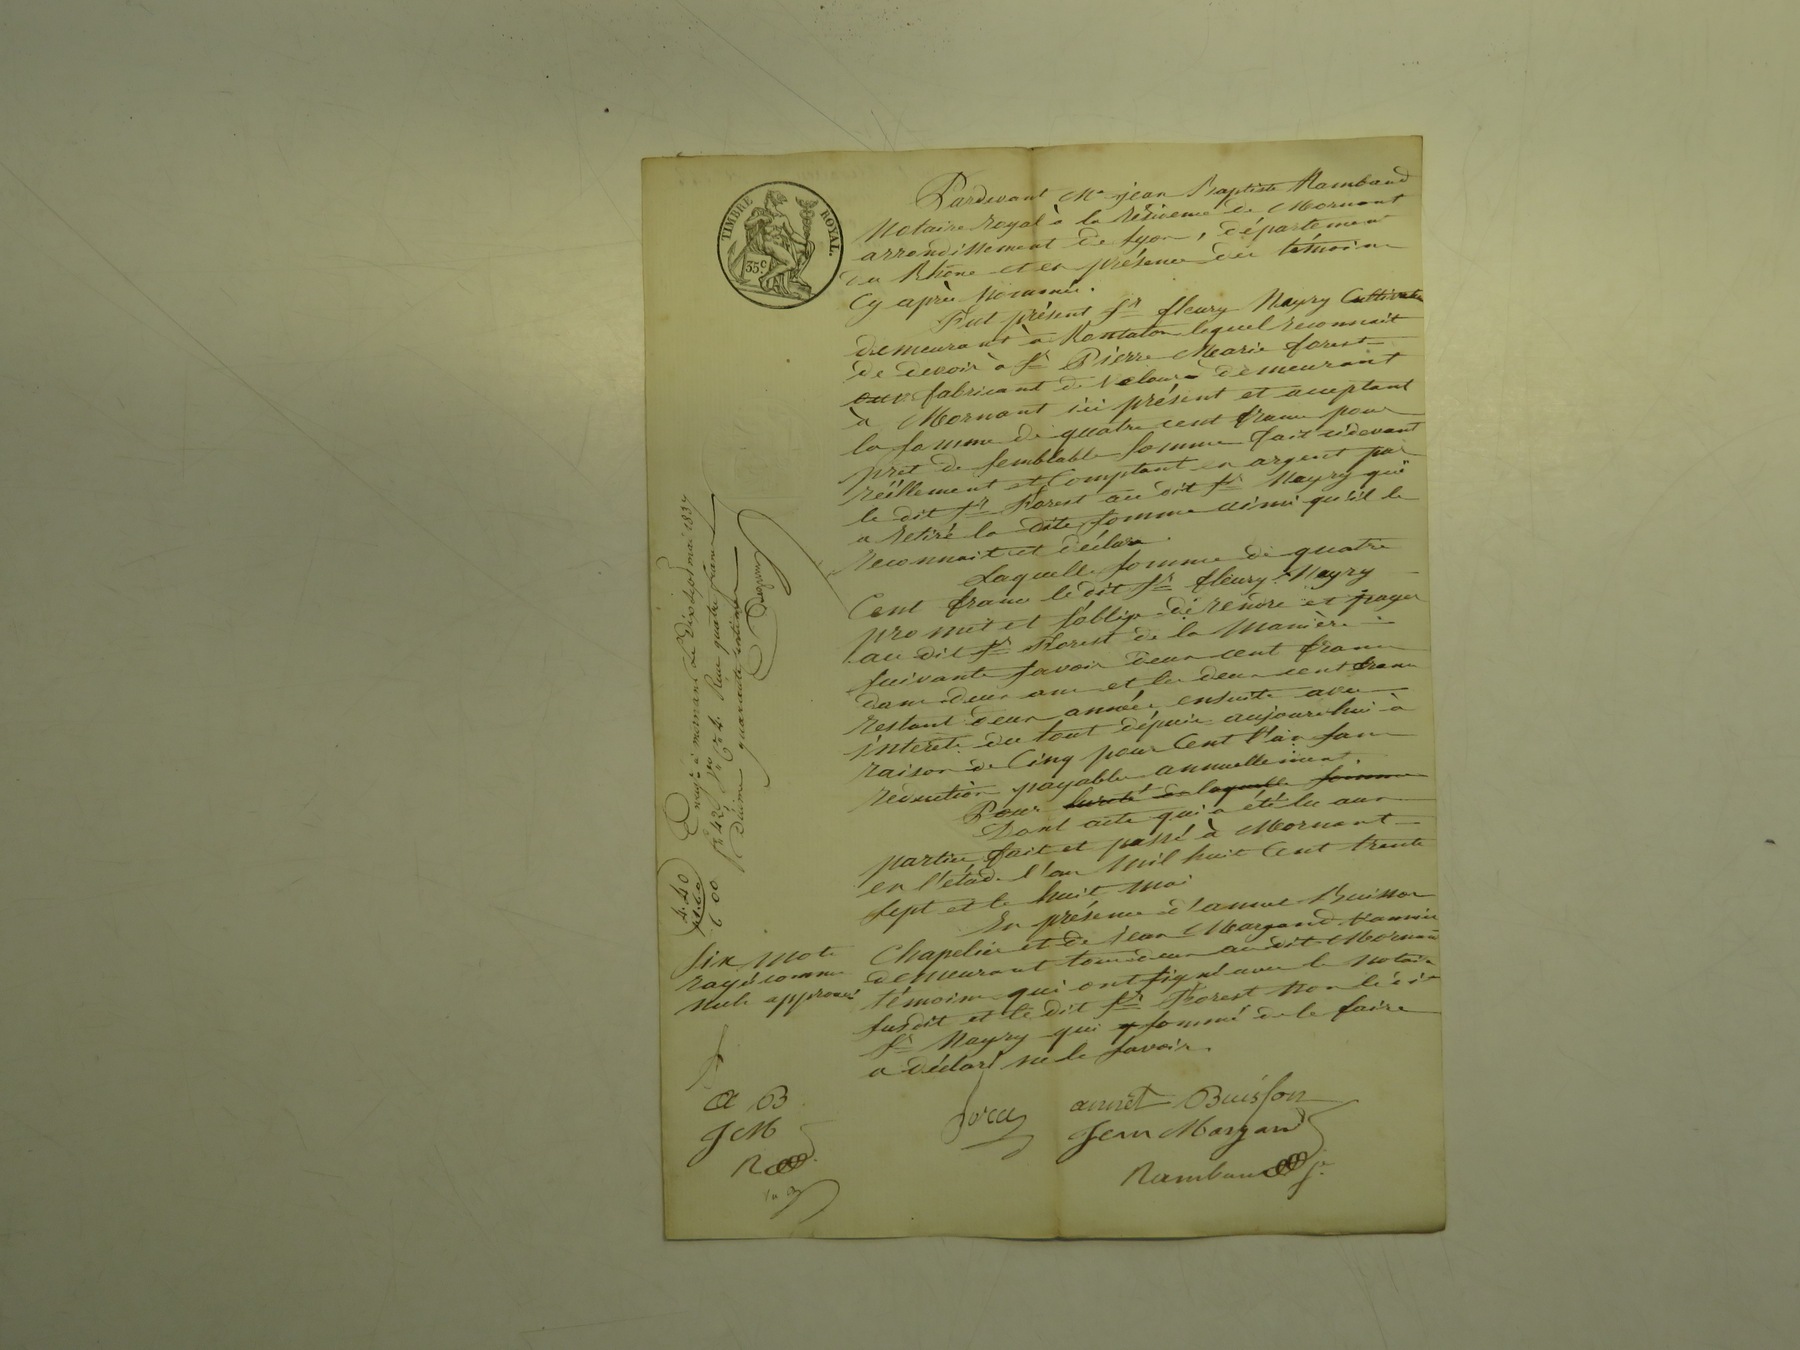 TIMBRE ROYAL
35c
Pardevant Me jean Baptiste Rambaud
Notaire royal à la résidence de Mornant
arrondissement de Lyon, département
du Rhône et en présence des témoins
Cy après nommés.
Fut présent Sr fleury Nayry Cultivateur
demeurant à Rontalon lequel reconnait
de devoir à Sr Pierre Marie forest
fabricant de velours demeurant
à Mornant ici présent et aceptant
la somme de quatre cent francs pour
prêt de semblable somme fait cidevant
réellement et Comptant en argent par
le dit Sr Forest au dit Sr Nayry qui
a retiré la dite somme ainsi qu'il le
reconnait et déclare.
Laquelle somme de quatre
Cent francs le dit Sr fleury Nayry
promet et s'oblige de rendre et payer
au dit Sr Forest de la manière
suivante savoir deux cent francs
dans deux ans et les deux cent francs
restant deux années ensuite avec
intérêts du tout dépuis aujourd'hui à
raison de Cinq pour Cent l'an sans
réduction payable annuellement.
Pour sureté de laquelle somme
Dont acte qui a été lu aux
parties fait et passé à Mornant
en l'étude l'an mil huit Cent trente
sept et le huit mai
En présence d'annet Buisson
Chapelier et de Jean Margand
demeurant tous deux au dit Mornant
témoins qui ont signé avec le notaire
susdit et le dit Sr Forest non le dit
Sr Nayry qui sommé de le faire
a déclaré ne le savoir.
annet Buisson
Jean Margand
Rambaud
Enregé à mornant le dixsept mai 1837
Reçu quatre francs
Décime quarante centimes
4.40
6 00
six mots
rayés comme
nuls approuvés
a B
J M
R